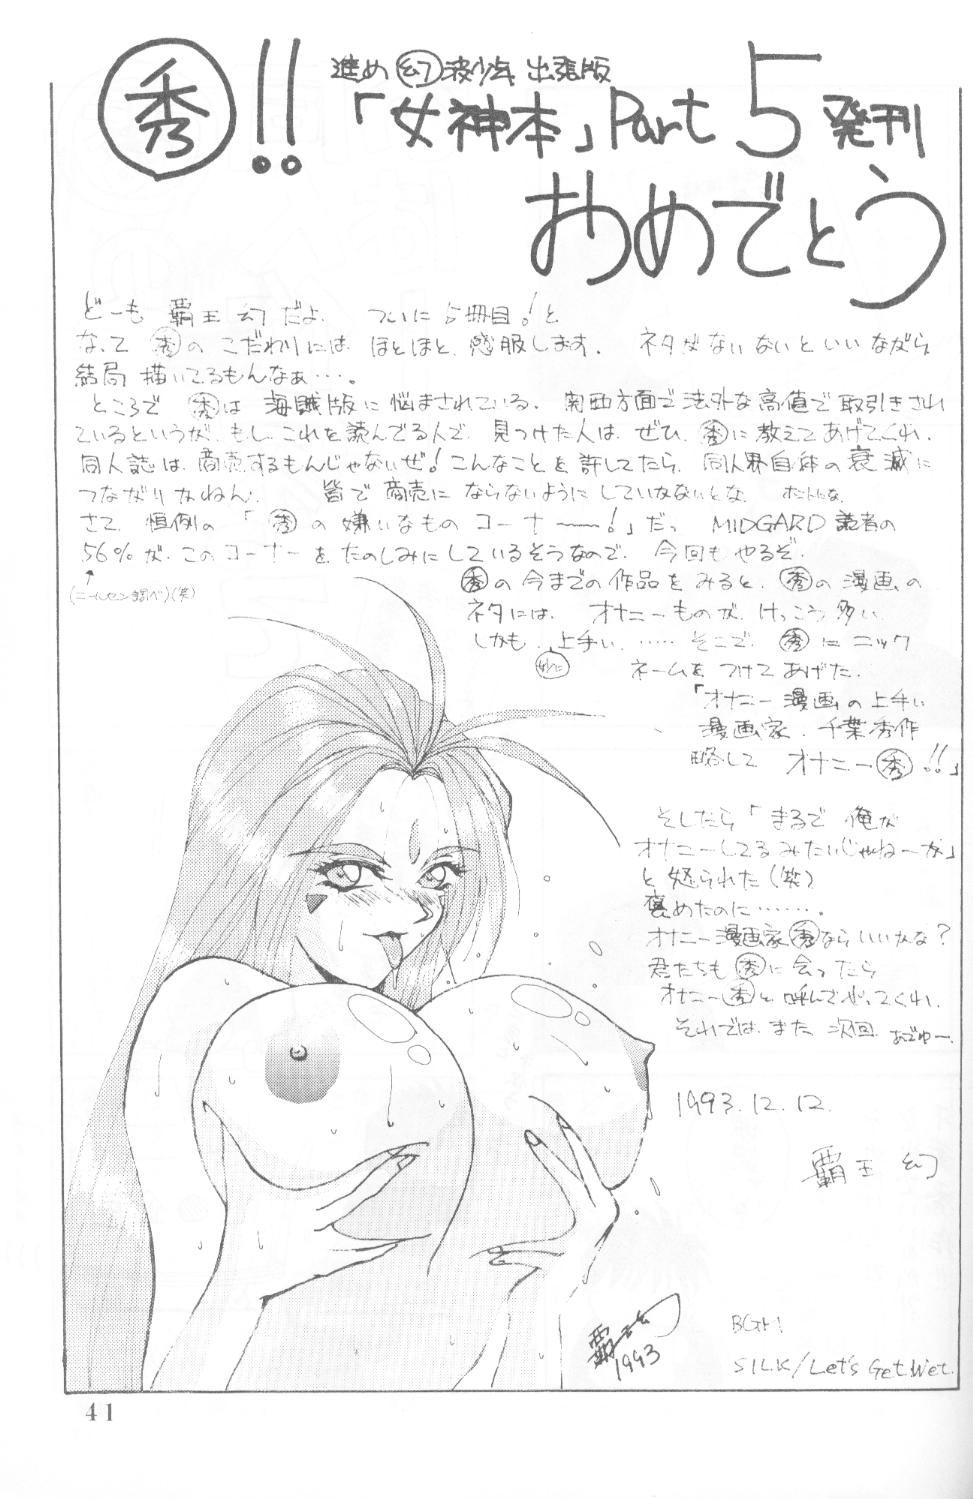 秀!!
進め 幻 波少年 出張版
「女神本」Part 5 発刊
おめでとう
どーも 覇王 幻 だよ. ついに 5冊目!と
なって 秀の こだわりには ほとほと 感服します. ネタがないないといいながら
結局 描いてるもんなぁ…。
ところで 秀は 海賊版に悩まされている. 関西方面で法外な高値で取引きされ
ているというが もし これを読んでる人で. 見つけた人は ぜひ 秀に教えてあげてくれ.
同人誌は 商売するもんじゃないぜ! こんなことを許してたら 同人界自体の衰滅に
つながりかねん. 皆で商売に ならないようにしていかないとな. ホントにな.
さて 恒例の 「秀の嫌いなもの コーナー〜!」だっ MIDGARD 読者の
56%が このコーナーを たのしみにしているそうなので. 今回も やるぞ.
(ニールセン調べ)(笑)
秀の今までの作品をみると. 秀の漫画の
ネタには オナニーものが けっこう多い
しかも 上手い …… そこで 秀にニック
妙に
ネームを つけてあげた.
「オナニー漫画の上手い
漫画家. 千葉秀作
略して オナニー秀!!」
そしたら「まるで 俺が
オナニーしてるみたいじゃねーか」
と 怒られた (笑)
褒めたのに………。
オナニー漫画家秀ならいいかな?
君たちも 秀に会ったら
オナニー秀と呼んでやってくれ.
それでは また 次回 あでゅー.
1993.12.12.
覇王 幻
覇王幻
1993
BGM
SILK/Let's Get Wet.
41